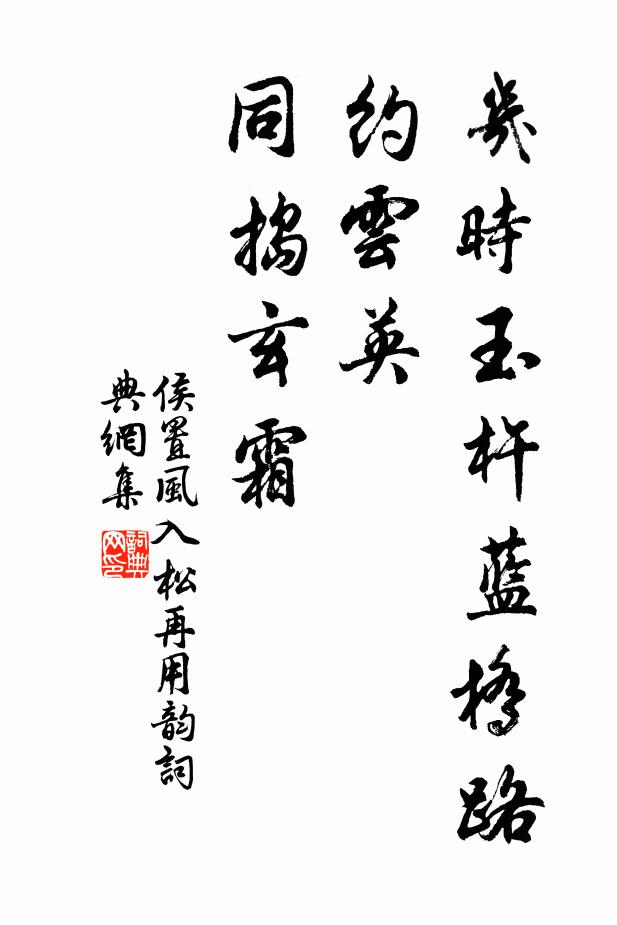 幾時玉杵藍橋路
約雲英
同搗玄霜
侯置風入松再用韵詞
典網集
詞典网印